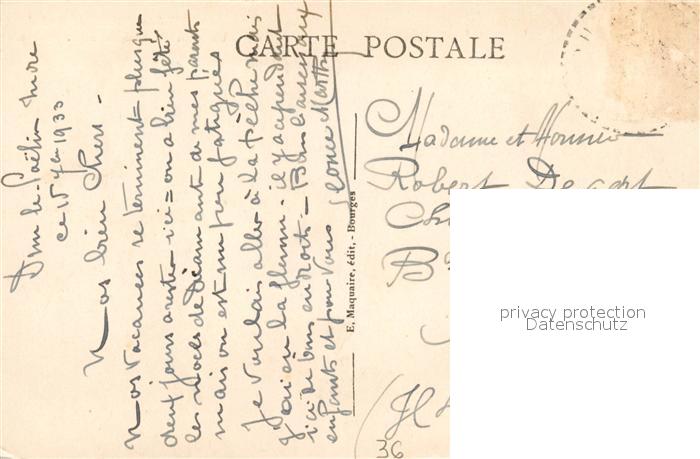 CARTE POSTALE
Dun le Poëlier Indre
ce 15 7bre 1933
Nos bien Chers -
Nos vacances se terminent plus que
dix jours à rester ici = on a bien fêté
les noces de Diamant de mes parents
mais on est un peu fatigués
Je voulais aller à la pêche mais
j'ai eu la flemme - il y a cependant
ici de bons endroits - Bons baisers aux
enfants et pour vous
E. Maquaire, édit. - Bourges
Madame et Monsieur
Robert
privacy protection
Datenschutz
36